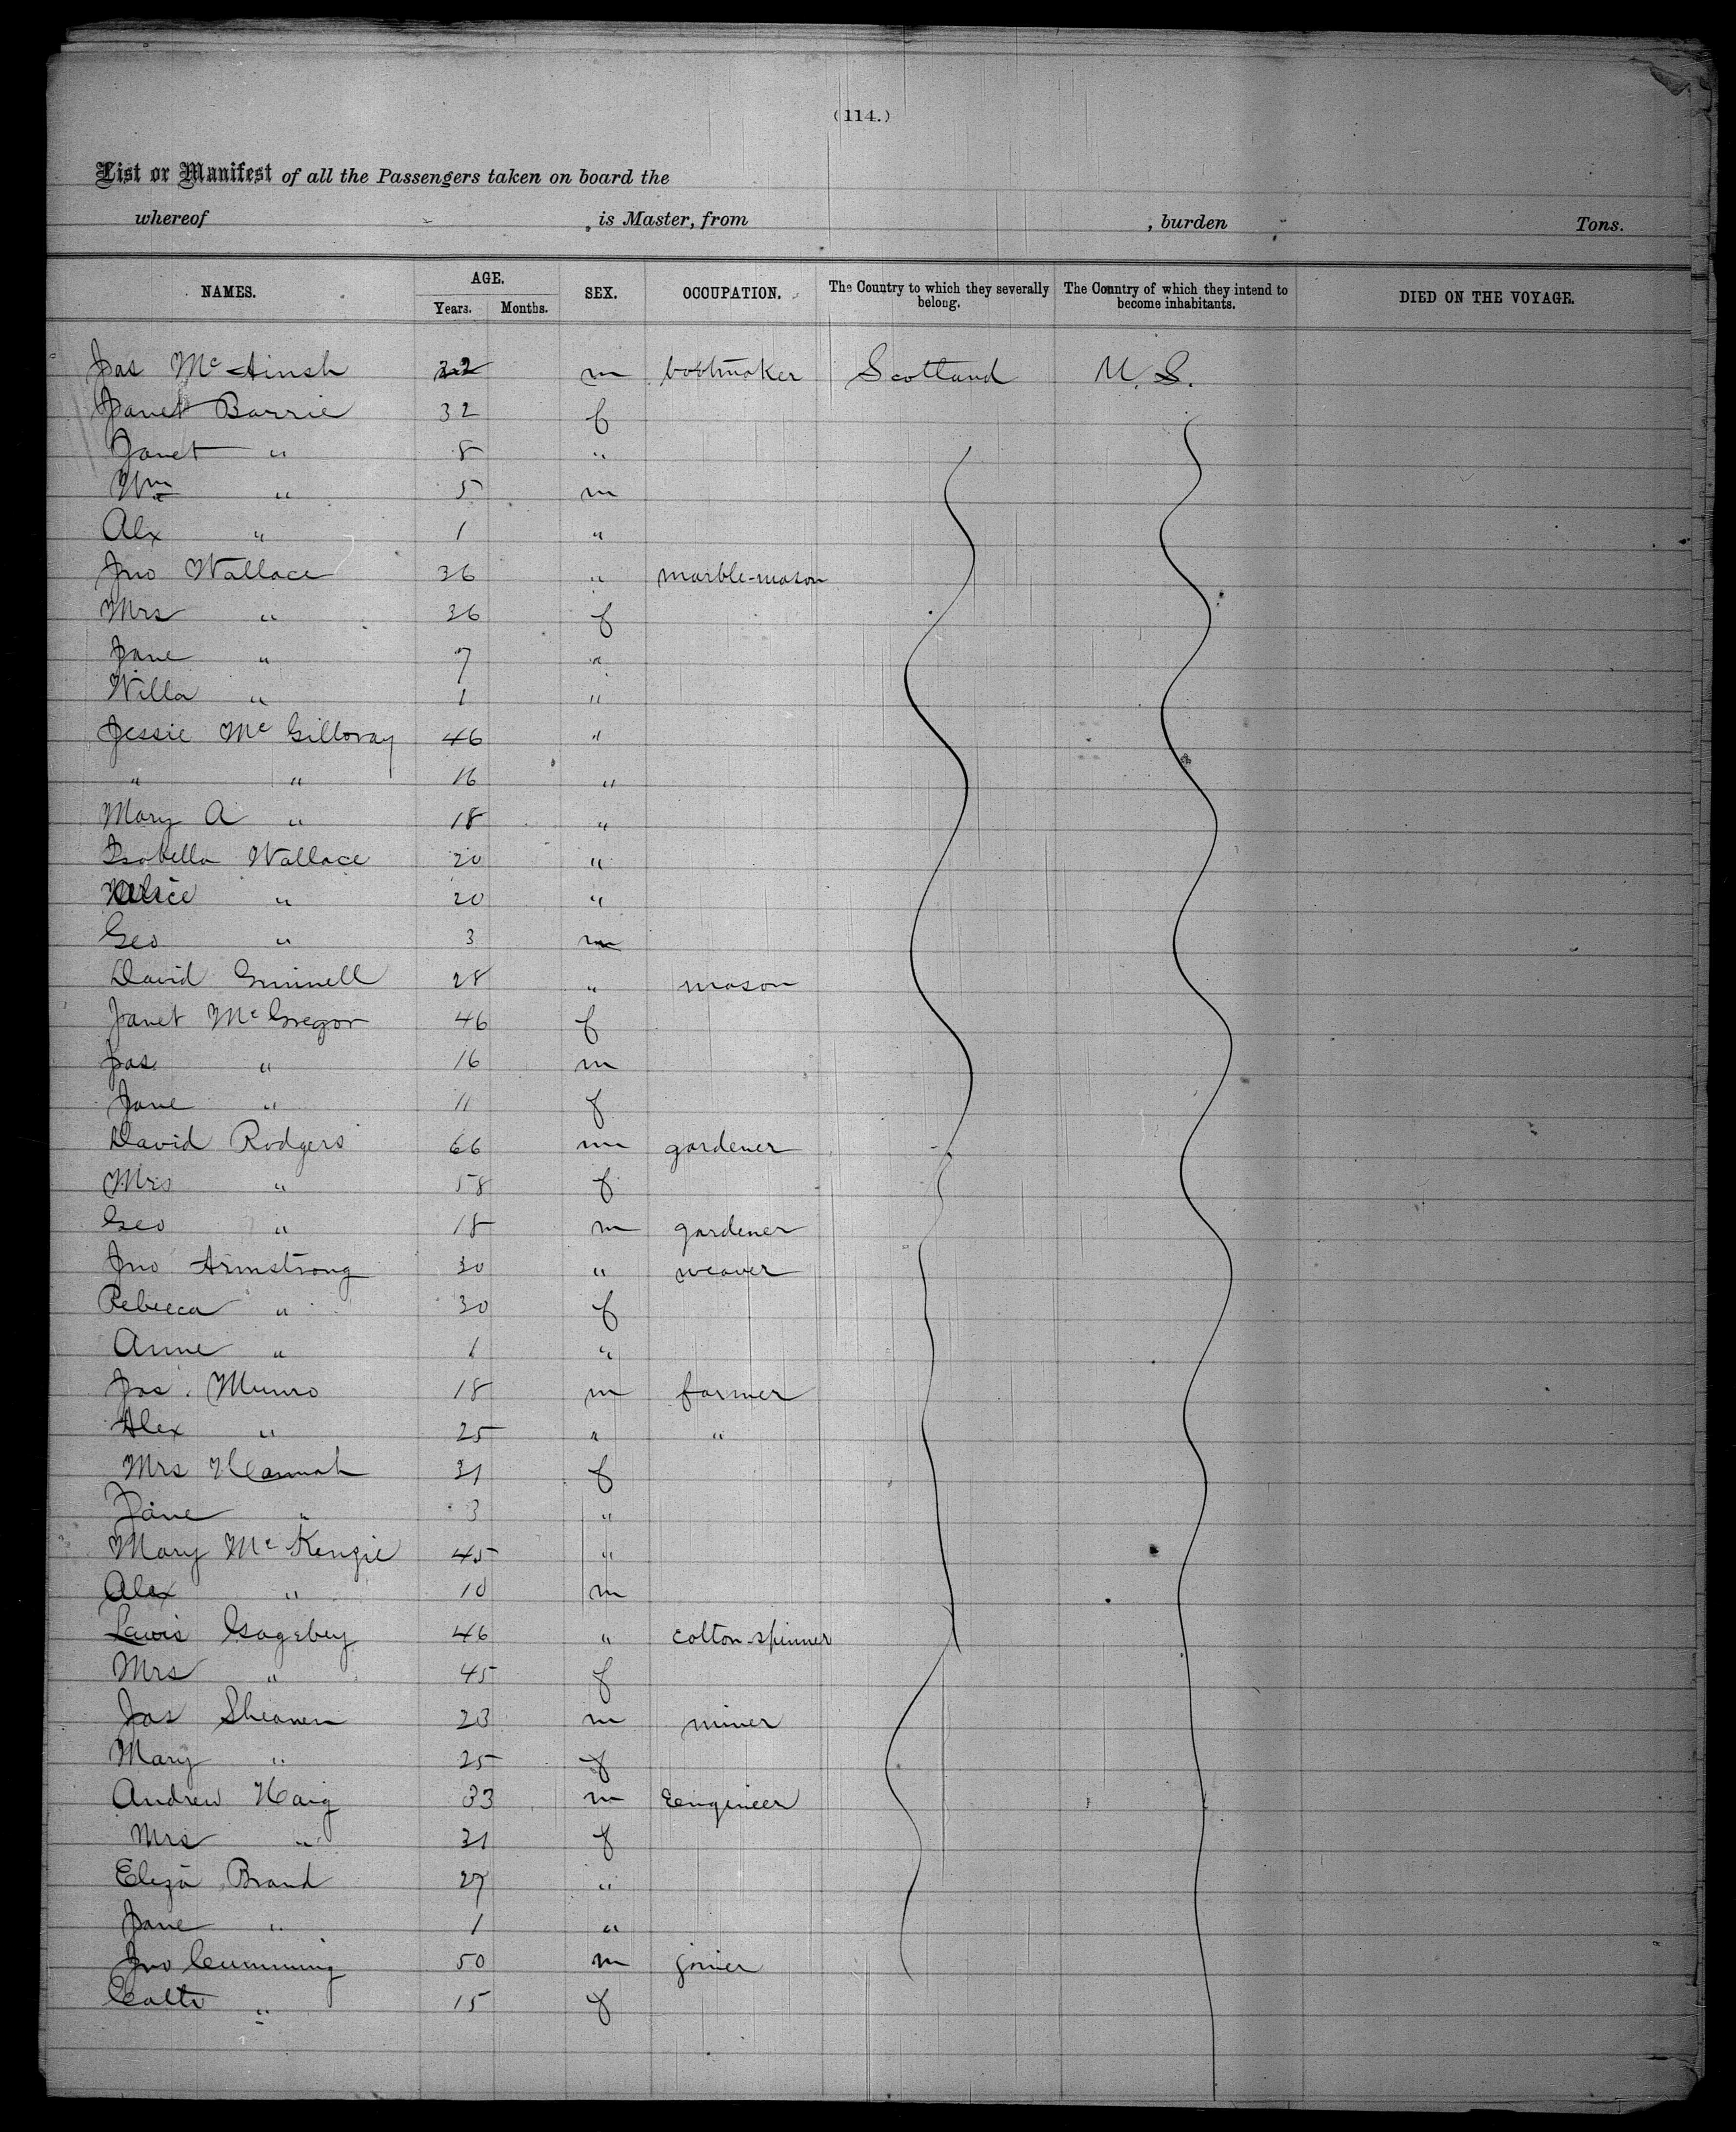 (114.)
List or Manifest of all the Passengers taken on board the
whereof , is Master, from , burden Tons.
NAMES. AGE. Years. Months. SEX. OCCUPATION. The Country to which they severally belong. The Country of which they intend to become inhabitants. DIED ON THE VOYAGE.
Jas McAinsh 32 m bootmaker Scotland U. S.
Janet Barrie 32 f
Janet " 8 "
Wm " 5 m
Alx " 1 "
Jno Wallace 36 " marble-mason
Mrs " 36 f
Jane " 7 "
Willa " 1 "
Jessie McGillvray 46 "
" " 16 "
Mary A " 18 "
Isabella Wallace 20 "
Alice " 20 "
Geo " 3 m
David 28 " mason
Janet McGregor 46 f
Jas " 16 m
Jane " 11 f
David Rodgers 66 m gardener
Mrs " 58 f
Geo " 18 m gardener
Jno Armstrong 30 " weaver
Rebecca " 30 f
Anne " 1 "
Jas. Munro 18 m farmer
Alex " 25 " "
Mrs Hannah 31 f
Jane " 3 "
Mary McKenzie 45 "
Alex " 10 m
Lewis 46 " cotton-spinner
Mrs " 45 f
Jas 23 m miner
Mary " 25 f
Andrew Haig 33 m Eengineer
Mrs " 31 f
Eliza Brand 27 "
Jane " 1 "
Jno Cumming 50 m joiner
" 15 f